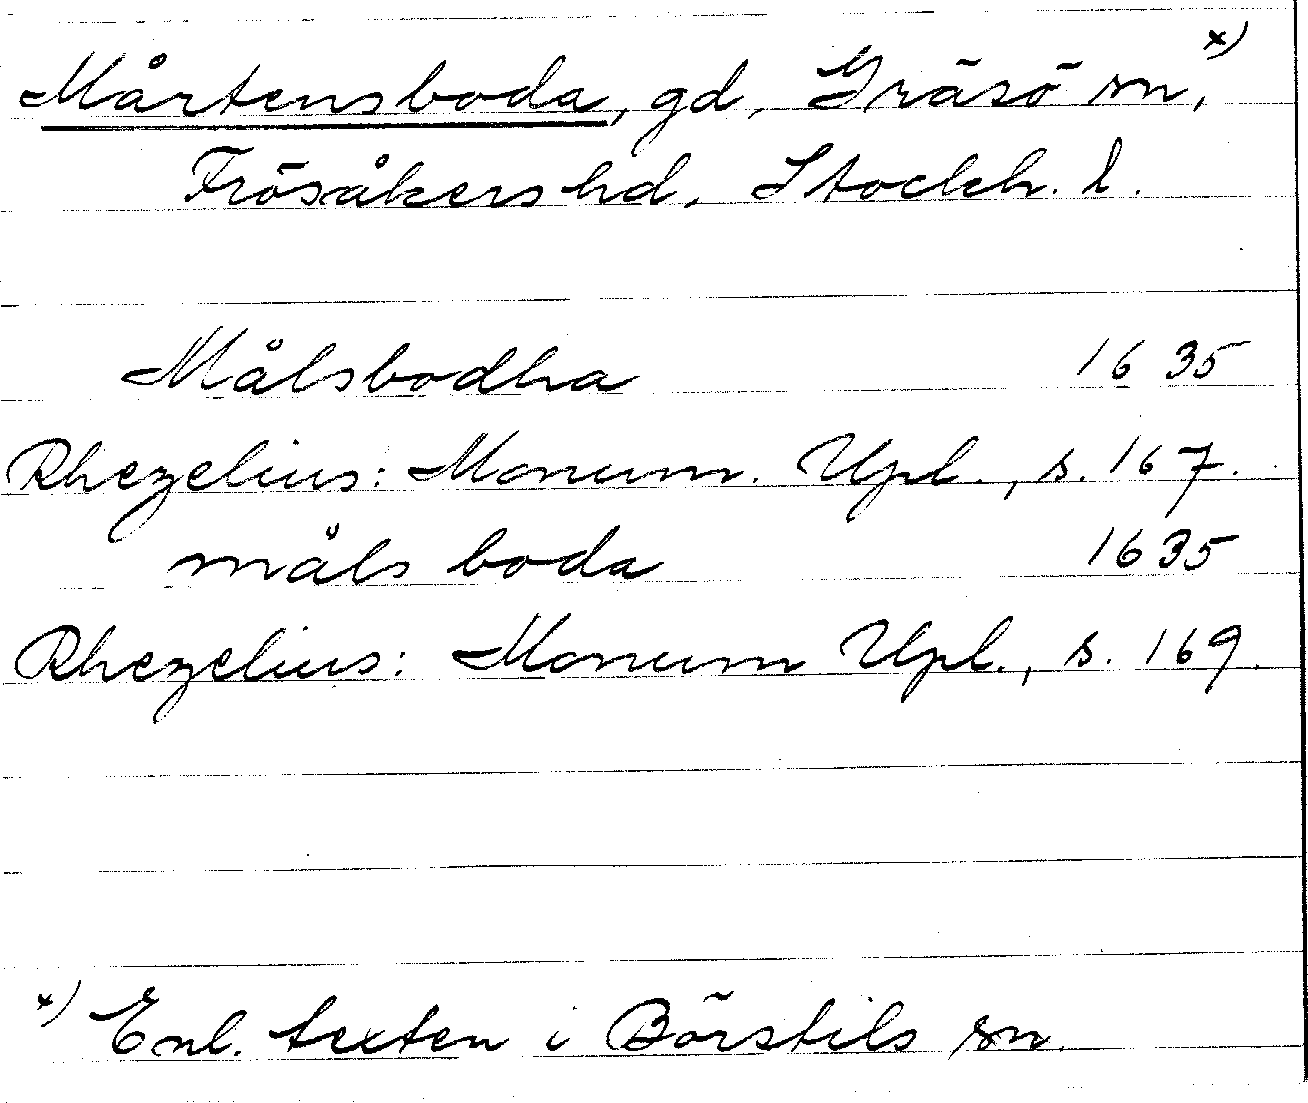 Mårtensboda, gd, Gräsö sn, x)
Frösåkers hd, Stockh. l.
Målsbodha 1635
Rhezelius: Monum. Upl., s. 167.
måls boda 1635
Rhezelius: Monum Upl., s. 169.
x) Enl. texten i Börstils sn.